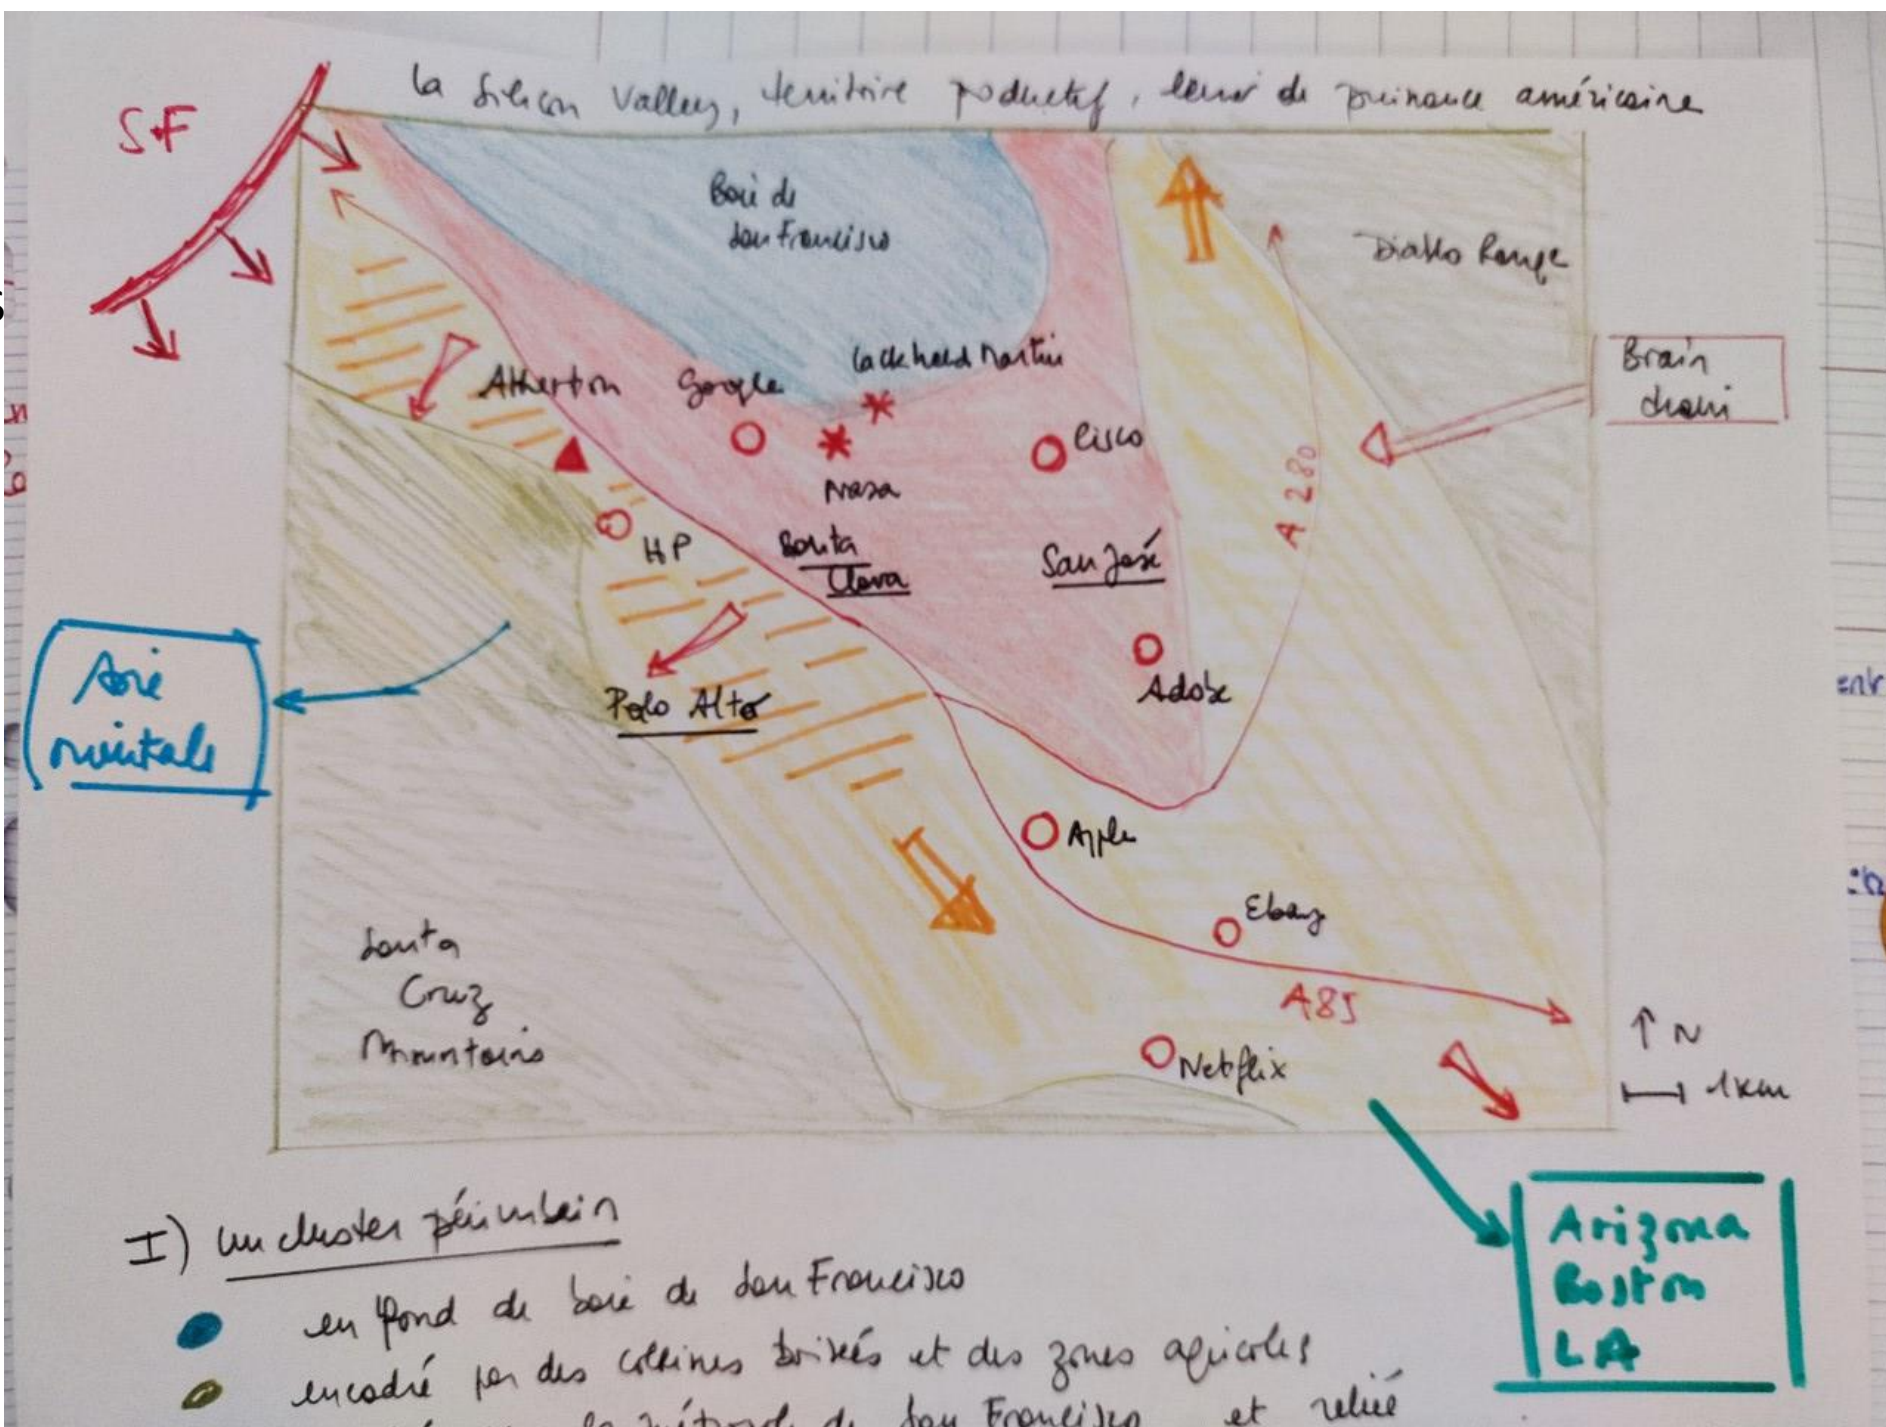 La Silicon Valley, territoire poductif, levier de puissance américaine
SF
Baie de
San Francisco
Diablo Range
Brain
drain
Lackheed Martin
Atherton
Google
Cisco
Nasa
A 280
HP
Santa
Clara
San José
Asie
orientale
Palo Alto
Adobe
Apple
Ebay
Santa
Cruz
Mountains
A85
N
Netflix
1km
Arizona
Boston
LA
I) un cluster périurbain
en fond de baie de San Francisco
encadré par des collines boisées et des zones agricoles
la métropole de San Francisco et relié